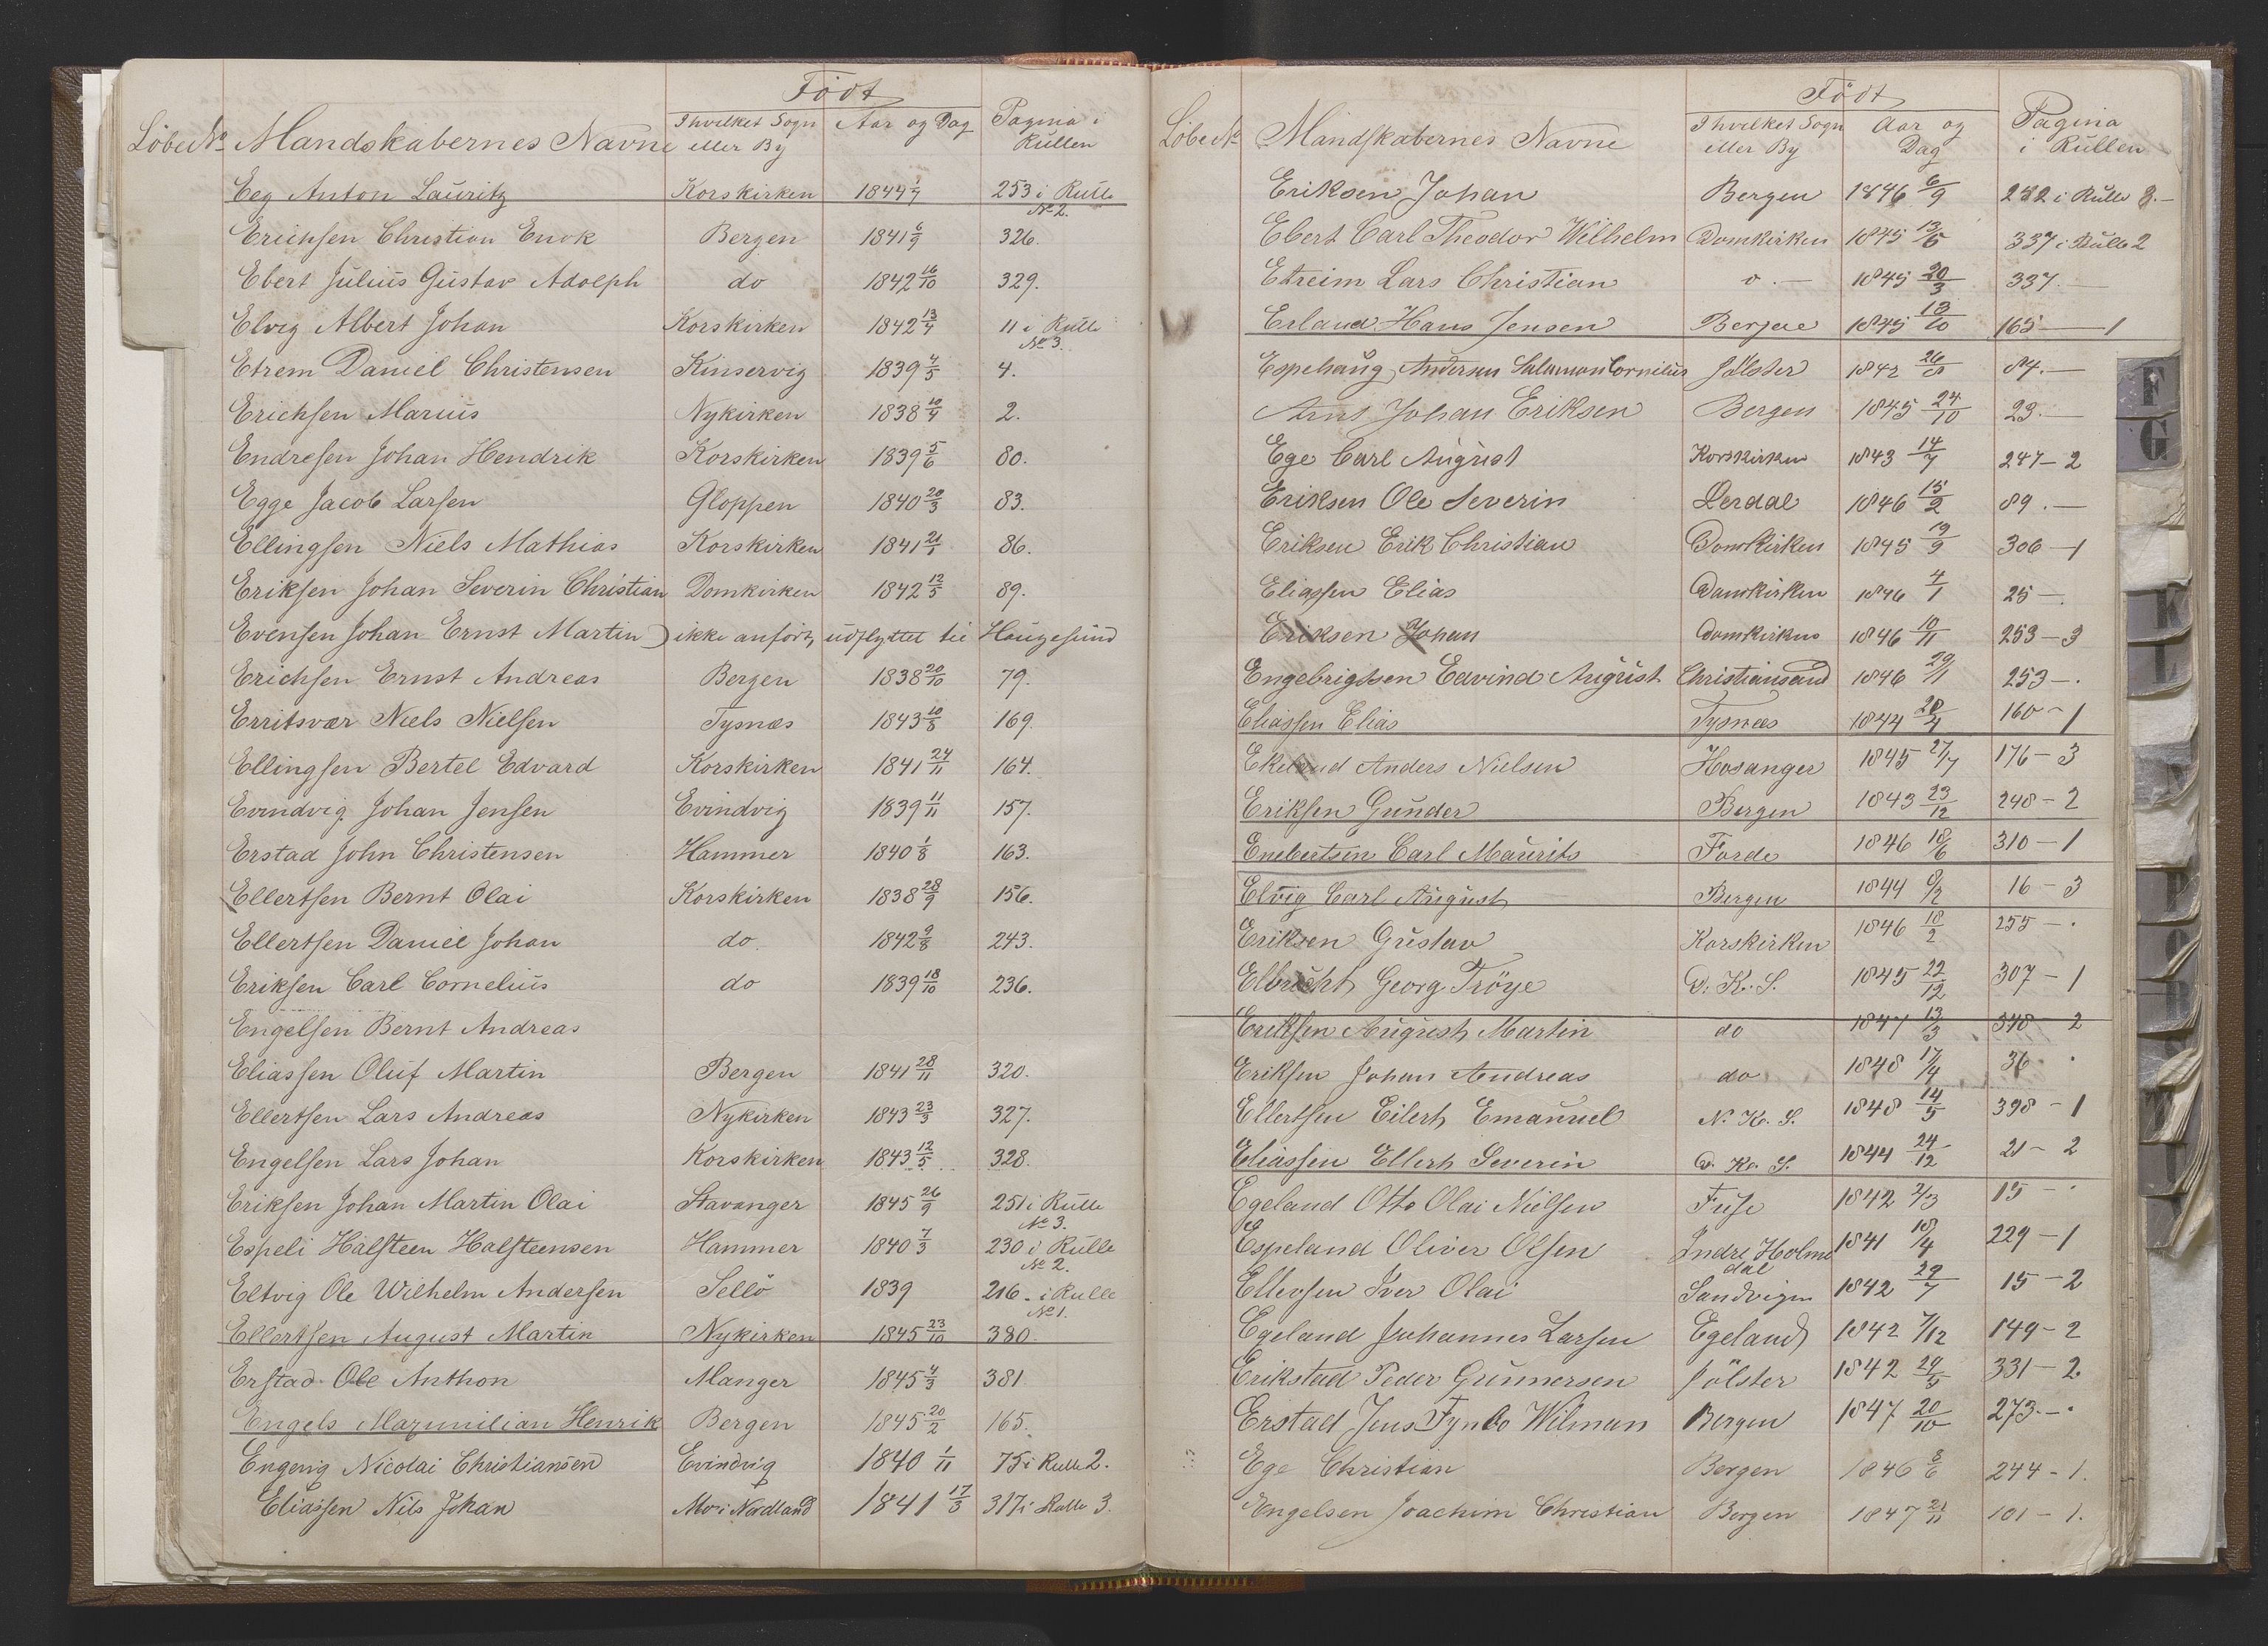 Födt
Löbe No Mandskabernes Navne I hvilket Sogn eller By Aar og Dag Pagina i Rullen
Eeg Anton Lauritz Korskirken 1844 253 i Rulle No 2.
Erichsen Christian Enok Bergen 1841 6/9 326.
Ebert Julius Gustav Adolph do 1842 16/10 329.
Elvig Albert Johan Korskirken 1842 13/4 11 i Rulle No 3.
Etrem Daniel Christensen Kinservig 1839 4/5 4.
Erichsen Marius Nykirken 1838 10/4 2.
Endresen Johan Hendrik Korskirken 1839 5/6 80.
Egge Jacob Larsen Gloppen 1840 20/3 83.
Ellingsen Niels Mathias Korskirken 1841 21/1 86.
Eriksen Johan Severin Christian Domkirken 1842 12/5 89.
Evensen Johan Ernst Martin) ikke anført, udflyttet til Haugesund
Erichsen Ernst Andreas Bergen 1838 20/10 79.
Erritsvær Niels Nielsen Tysnæs 1843 10/8 169.
Ellingsen Bertel Edvard Korskirken 1841 24/11 164.
Evindvig Johan Jensen Evindvig 1839 11/11 157.
Erstad John Christensen Hammer 1840 1/8 163.
Ellertsen Bernt Olai Korskirken 1838 28/9 156.
Ellertsen Daniel Johan do. 1842 9/8 243.
Eriksen Carl Cornelius do 1839 18/10 236.
Engelsen Bernt Andreas
Eliassen Oluf Martin Bergen 1841 28/11 320.
Ellertsen Lars Andreas Nykirken 1843 23/3 327.
Engelsen Lars Johan Korskirken 1843 12/5 328.
Eriksen Johan Martin Olai Stavanger 1845 26/9 251 i Rulle No 3.
Espeli Halsteen Halsteensen Hammer 1840 7/3 230 i Rulle No 2.
Eltvig Ole Wilhelm Andersen Sellö 1839 216 - i Rulle No 1.
Ellertsen August Martin Nykirken 1845 23/10 380.
Erstad Ole Anthon Manger 1845 4/3 381.
Engels Maximilian Henrik Bergen 1845 20/2 165.
Engevig Nicolai Christiansen Evindvig 1840 1/11 75 i Rulle 2.
Eliassen Nils Johan Mo i Nordland 1841 17/3 317 i Rulle 3.
Födt
Löbe No Mandskabernes Navne I hvilket Sogn eller By Aar og Dag Pagina i Rullen
Eriksen Johan Bergen 1846 6/9 282 i Rulle 3.-
Ebert Carl Theodor Wilhelm Domkirken 1845 337 i Rulle 2
Etreim Lars Christian o.- 1845 20/3 337.-
Erland Hans Jensen 1845 165 - 1
Espehaug, Andersen Salumon Cornelius Jölster 1842 84.-
Arnt Johan Eriksen Bergen 1845 24/10 23.-
Ege Carl August Korskirken 1843 14/7 247 - 2
Eriksen Ole Severin Lerdal 1846 15/2 89.-
Eriksen Erik Christian Domkirken 1845 19/9 306 - 1
Eliassen Elias Domkirken 1846 4/1 25 -.
Eriksen Johan Domkirken 1846 10/11 253 - 3
Engebrigtsen Edvind August Christiansand 1846 29/1 253 -.
Eliassen Elias Tysnæs 1844 28/4 160 - 1
Ekelund Anders Nielsen Hosanger 1845 27/7 176 - 3
Eriksen Gunder Bergen 1843 23/12 248 - 2
Enebertsen Carl Maurits Forde 1846 18/6 310 - 1
Elvig Carl August Bergen 1844 16 - 3
Eriksen Gustav Korskirken 1846 18/2 255 -.
Elbrecht Georg Tröye D. K. S. 1845 22/12 307 - 1
Eriksen August Martin do 1847 13/3 348 - 2
Eriksen Johan Andreas do 1848 17/4 36.
Ellertsen Eilert Emanuel N. K. S. 1848 14/5 398 - 1
Eliassen Ellert Severin D. K. S. 1844 24/12 21 - 2
Egeland Otto Olai Nielsen Fuse 1842 2/3 15 -.
Espeland Oliver Olsen Indre Holmedal 1841 18/4 229 - 1
Ellevsen Iver Olai Sandvigen 1842 29/7 15 - 2
Egeland Johannes Larsen Egeland 1842 7/12 149 - 2
Erikstad Peder Gunnersen Jölster 1842 331 - 2
Erstad Jens Fynbo Wilman Bergen 1847 20/10 273.-.
Ege Christian Bergen 1846 8/6 244 - 1.
Engelsen Joachim Christian Bergen 1847 21/11 101 - 1.
F
G
K
L
N
P